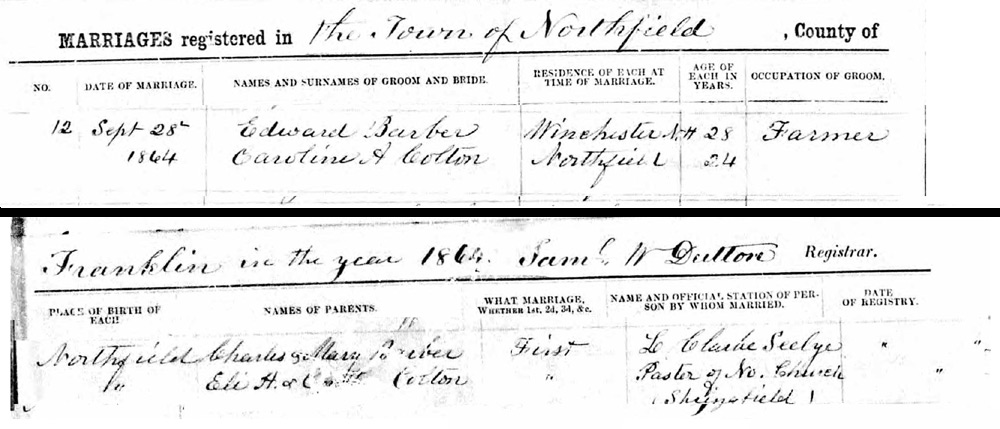 MARRIAGES registered in the Town of Northfield, County of
NO. DATE OF MARRIAGE. NAMES AND SURNAMES OF GROOM AND BRIDE. RESIDENCE OF EACH AT TIME OF MARRIAGE. AGE OF EACH IN YEARS. OCCUPATION OF GROOM.
12 Sept 28 Edward Barber Winchester NH 28 Farmer
1864 Caroline A Colton Northfield 24
Franklin in the year 1864. Saml. W Dutton Registrar.
PLACE OF BIRTH OF EACH NAMES OF PARENTS. WHAT MARRIAGE, WHETHER 1st, 2d, 3d, &c. NAME AND OFFICIAL STATION OF PERSON BY WHOM MARRIED. DATE OF REGISTRY.
Northfield Charles & Mary Barber First L Clarke Seelye " "
" Eli A. & Colton " Pastor of No. Church "
(Springfield)